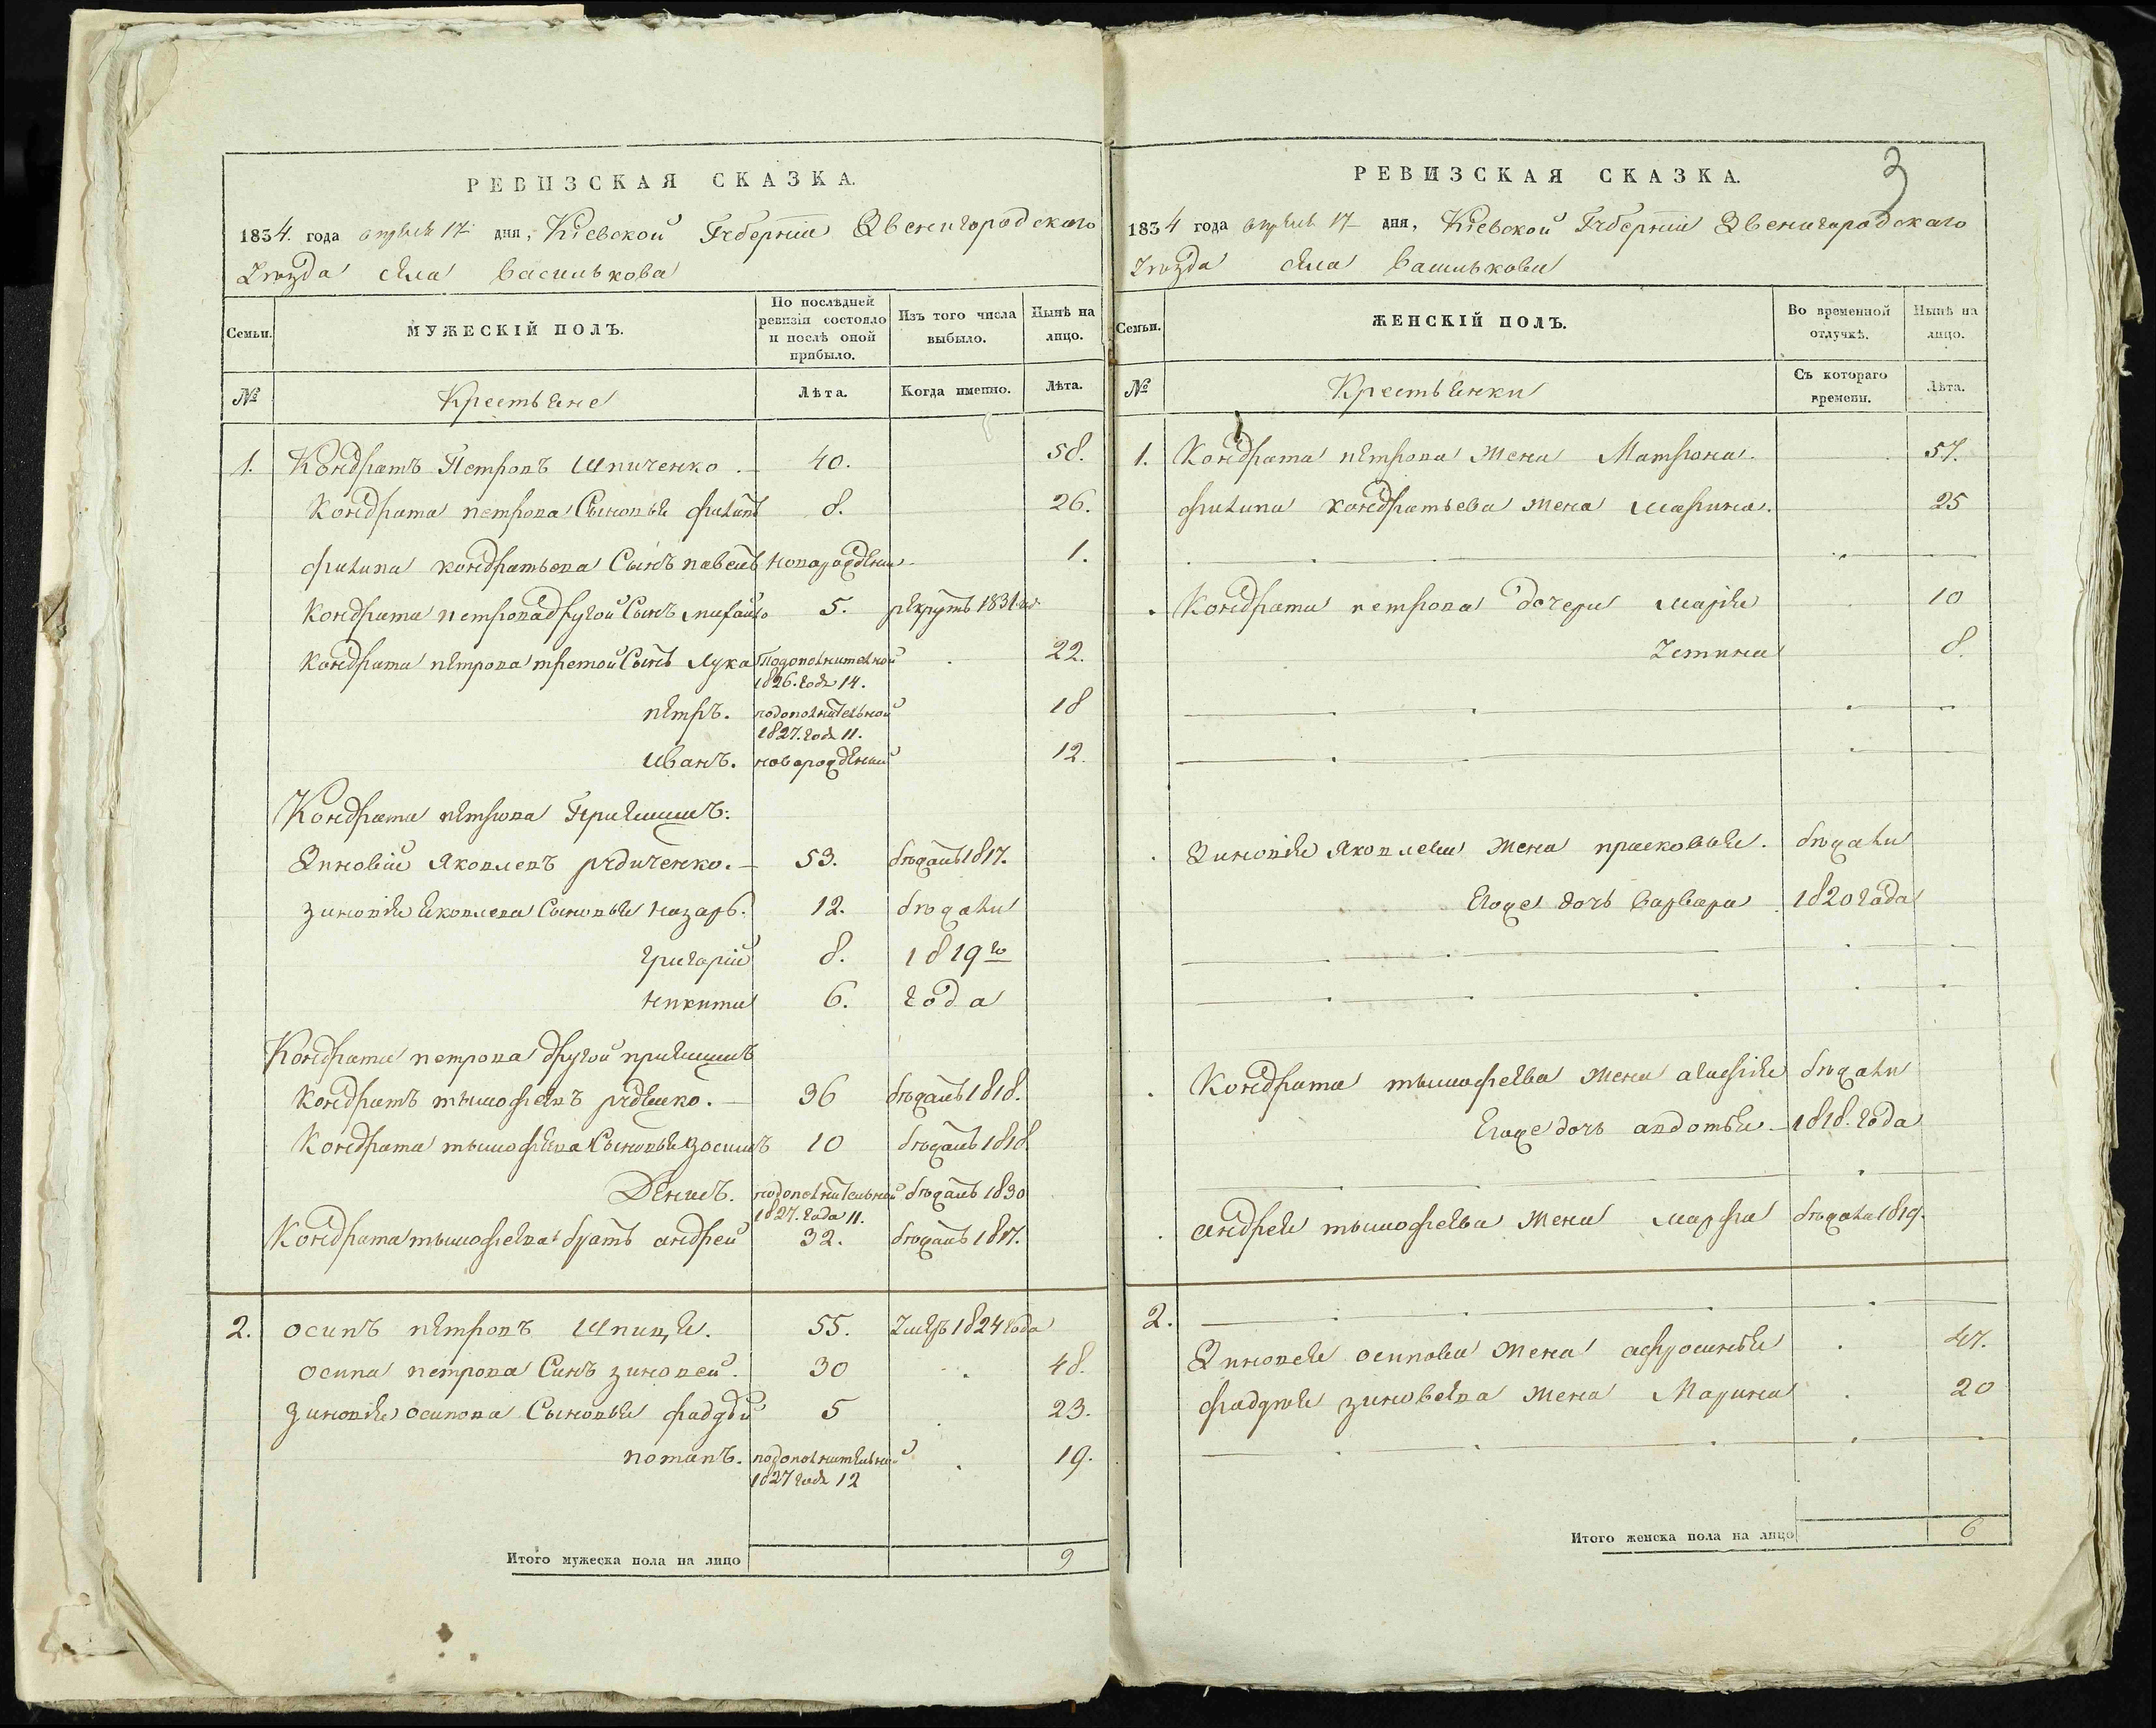 РЕВИЗСКАЯ СКАЗКА.
1834. года апреля 17 дня, Кіевской Губерніи Звенигородского
Уезда села Василькова
Семьи. МУЖЕСКІЙ ПОЛЪ. По послѣдней ревизіи состояло и послѣ оной прибыло. Изъ того числа выбыло. Нынѣ на лицо.
№ Крестьяне Лѣта. Когда именно. Лѣта.
1. Кондратъ Петровъ Шпиченко. 40. 58.
Кондрата петрова Сыновья филипъ 8. 26.
филипа кондратьева Сынъ павелъ новорожденый 1.
Кондрата петрова другой Сынъ михайло 5. рекрутъ 1831 год.
Кондрата петрова третой Сынъ лука Подополнителной 22.
1826. года 14.
петръ. подополнителной 18
1827. года 11.
иванъ. новорожденый 12.
Кондрата петрова Приемишъ:
Зиновій Яковлевъ рудиченко. 53. бѣжалъ 1817.
зиновія яковлева Сыновья назаръ. 12. бѣжали
григорій 8. 1819го
никита 6. года
Кондрата петрова другой приемишъ
Кондратъ тымофеевъ рудешко. 36 бѣжалъ 1818.
Кондрата тымофеева Сыновья зосимъ 10 бѣжалъ 1818.
Денисъ. подополнительной бѣжалъ 1830
1827. года 11.
Кондрата тымофеева братъ андрей 32. бѣжалъ 1817.
2. осипъ петровъ Шпица. 55. Умеръ 1824 года
осипа петрова Синъ зиновей. 30 48.
зиновія осипова Сыновья фаддѣй 5 23.
потапъ. подополнительной 19.
1827 года 12
Итого мужеска пола на лицо 9
3
РЕВИЗСКАЯ СКАЗКА.
1834 года апреля 17 дня, Кіевской Губерніи Звенигородского
Уезда села Василькова
Семьи. ЖЕНСКІЙ ПОЛЪ. Во временной отлучкѣ. Нынѣ на лицо.
№ Крестьянки Съ котораго времени. Лѣта.
1. Кондрата петрова жена Матрона. 57.
филипа кондратьева жена марина. 25
Кондрата петрова дочери марія 10
Устина 8.
Зиновія Яковлева жена прасковья. бѣжали
Егоже дочь варвара 1820 года
Кондрата тымофеева жена бѣжали
Егоже дочь авдотья 1818. года
андрея тымофеева жена марфа бѣжала 1819.
2.
Зиновея осипова жена афросинья 47.
фаддѣя зиновеева жена Марина 20
Итого женска пола на лицо 6